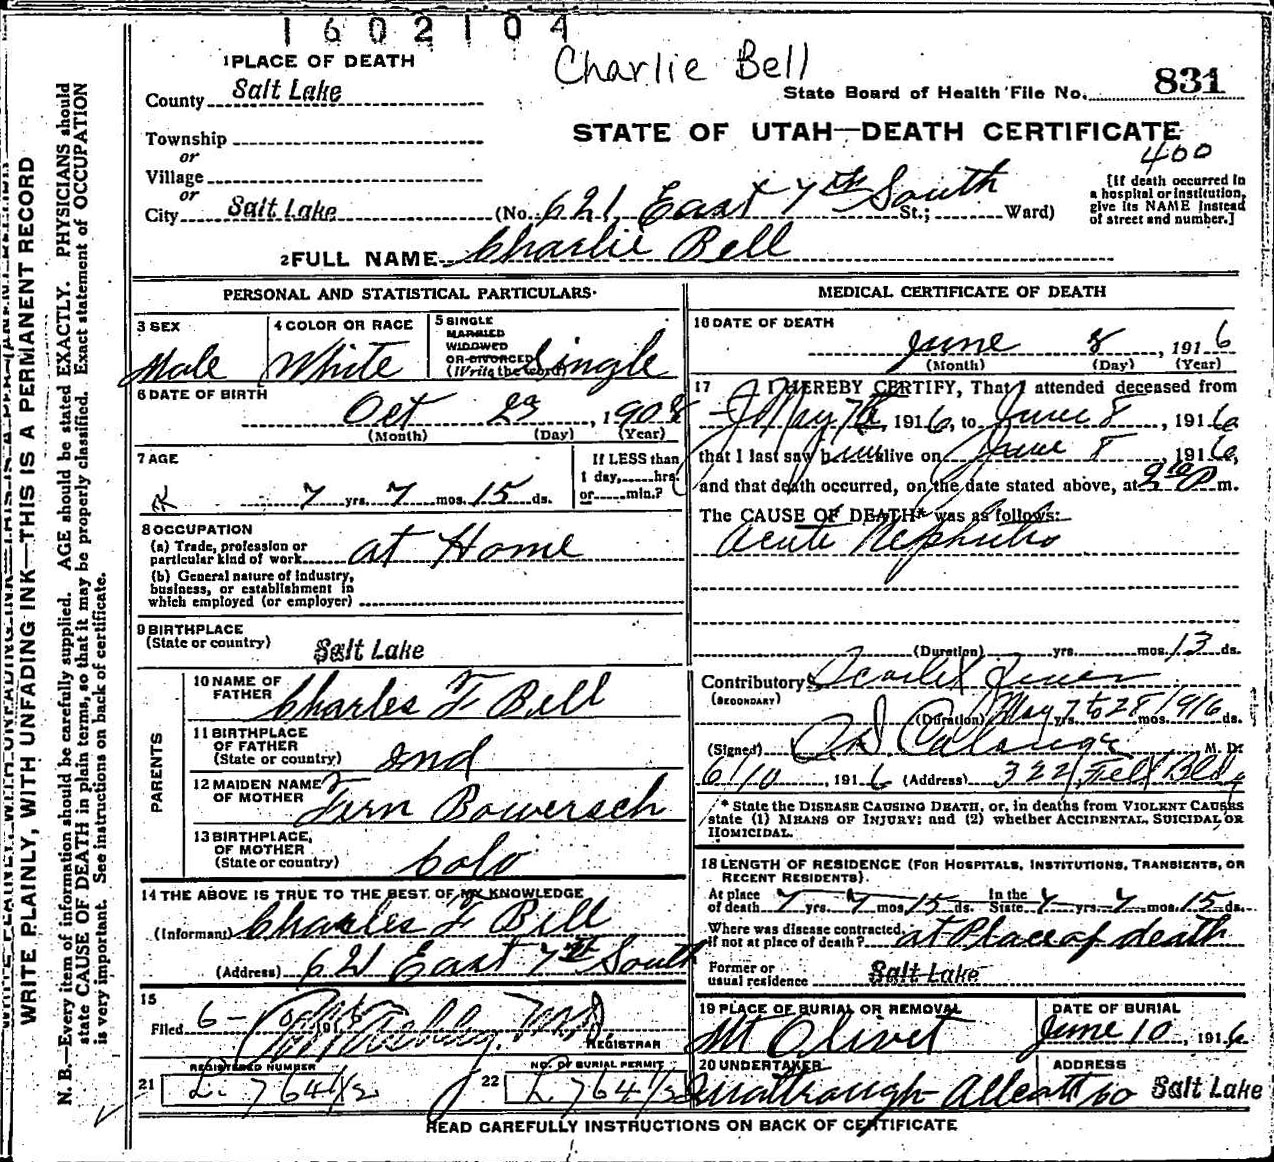 1602104
Charlie Bell
1 PLACE OF DEATH
County Salt Lake
State Board of Health File No. 831
Township
or
Village
or
City Salt Lake
STATE OF UTAH—DEATH CERTIFICATE
400
(No. 621 East 7th South St.; Ward)
[If death occurred in
a hospital or institution,
give its NAME instead
of street and number.]
2 FULL NAME Charlie Bell
PERSONAL AND STATISTICAL PARTICULARS
3 SEX
Male
4 COLOR OR RACE
White
5 SINGLE
MARRIED
WIDOWED
OR DIVORCED
(Write the word)
Single
6 DATE OF BIRTH
Oct 23, 1908
(Month) (Day) (Year)
7 AGE
7 yrs. 7 mos. 15 ds.
If LESS than
1 day, hrs.
or min.?
8 OCCUPATION
(a) Trade, profession or
particular kind of work at Home
(b) General nature of industry,
business, or establishment in
which employed (or employer)
9 BIRTHPLACE
(State or country) Salt Lake
PARENTS
10 NAME OF
FATHER Charles F Bell
11 BIRTHPLACE
OF FATHER
(State or country) Ind
12 MAIDEN NAME
OF MOTHER Fern Bowersch
13 BIRTHPLACE
OF MOTHER
(State or country) Colo
14 THE ABOVE IS TRUE TO THE BEST OF MY KNOWLEDGE
(Informant) Charles F Bell
(Address) 621 East 7th South
15
Filed 6- 191 6 M.D.
REGISTRAR
REGISTERED NUMBER
21 L 764 1/2
NO. OF BURIAL PERMIT
22 L 764 1/2
MEDICAL CERTIFICATE OF DEATH
16 DATE OF DEATH
June 8, 191 6
(Month) (Day) (Year)
17 I HEREBY CERTIFY, That I attended deceased from
May 7th, 191 6, to June 8, 191 6
that I last saw him alive on June 8, 191 6,
and that death occurred, on the date stated above, at P m.
The CAUSE OF DEATH* was as follows:
Acute Nephritis
(Duration) yrs. mos. 13 ds.
Contributory Scarlet Fever
(SECONDARY)
(Duration) May 7 to 28 1916 yrs. mos. ds.
(Signed) M. D.
6/10, 191 6 (Address) 322 Felt Bldg
* State the DISEASE CAUSING DEATH, or, in deaths from VIOLENT CAUSES
state (1) MEANS OF INJURY; and (2) whether ACCIDENTAL, SUICIDAL OR
HOMICIDAL.
18 LENGTH OF RESIDENCE (FOR HOSPITALS, INSTITUTIONS, TRANSIENTS, OR
RECENT RESIDENTS).
At place
of death 7 yrs. 7 mos. 15 ds. In the
State 7 yrs. 7 mos. 15 ds.
Where was disease contracted,
if not at place of death? at Place of death
Former or
usual residence Salt Lake
19 PLACE OF BURIAL OR REMOVAL
Mt Olivet
DATE OF BURIAL
June 10, 191 6
20 UNDERTAKER
ADDRESS
Salt Lake
READ CAREFULLY INSTRUCTIONS ON BACK OF CERTIFICATE
WRITE PLAINLY, WITH UNFADING INK—THIS IS A PERMANENT RECORD
N. B.—Every item of information should be carefully supplied. AGE should be stated EXACTLY. PHYSICIANS should
state CAUSE OF DEATH in plain terms, so that it may be properly classified. Exact statement of OCCUPATION
is very important. See instructions on back of certificate.